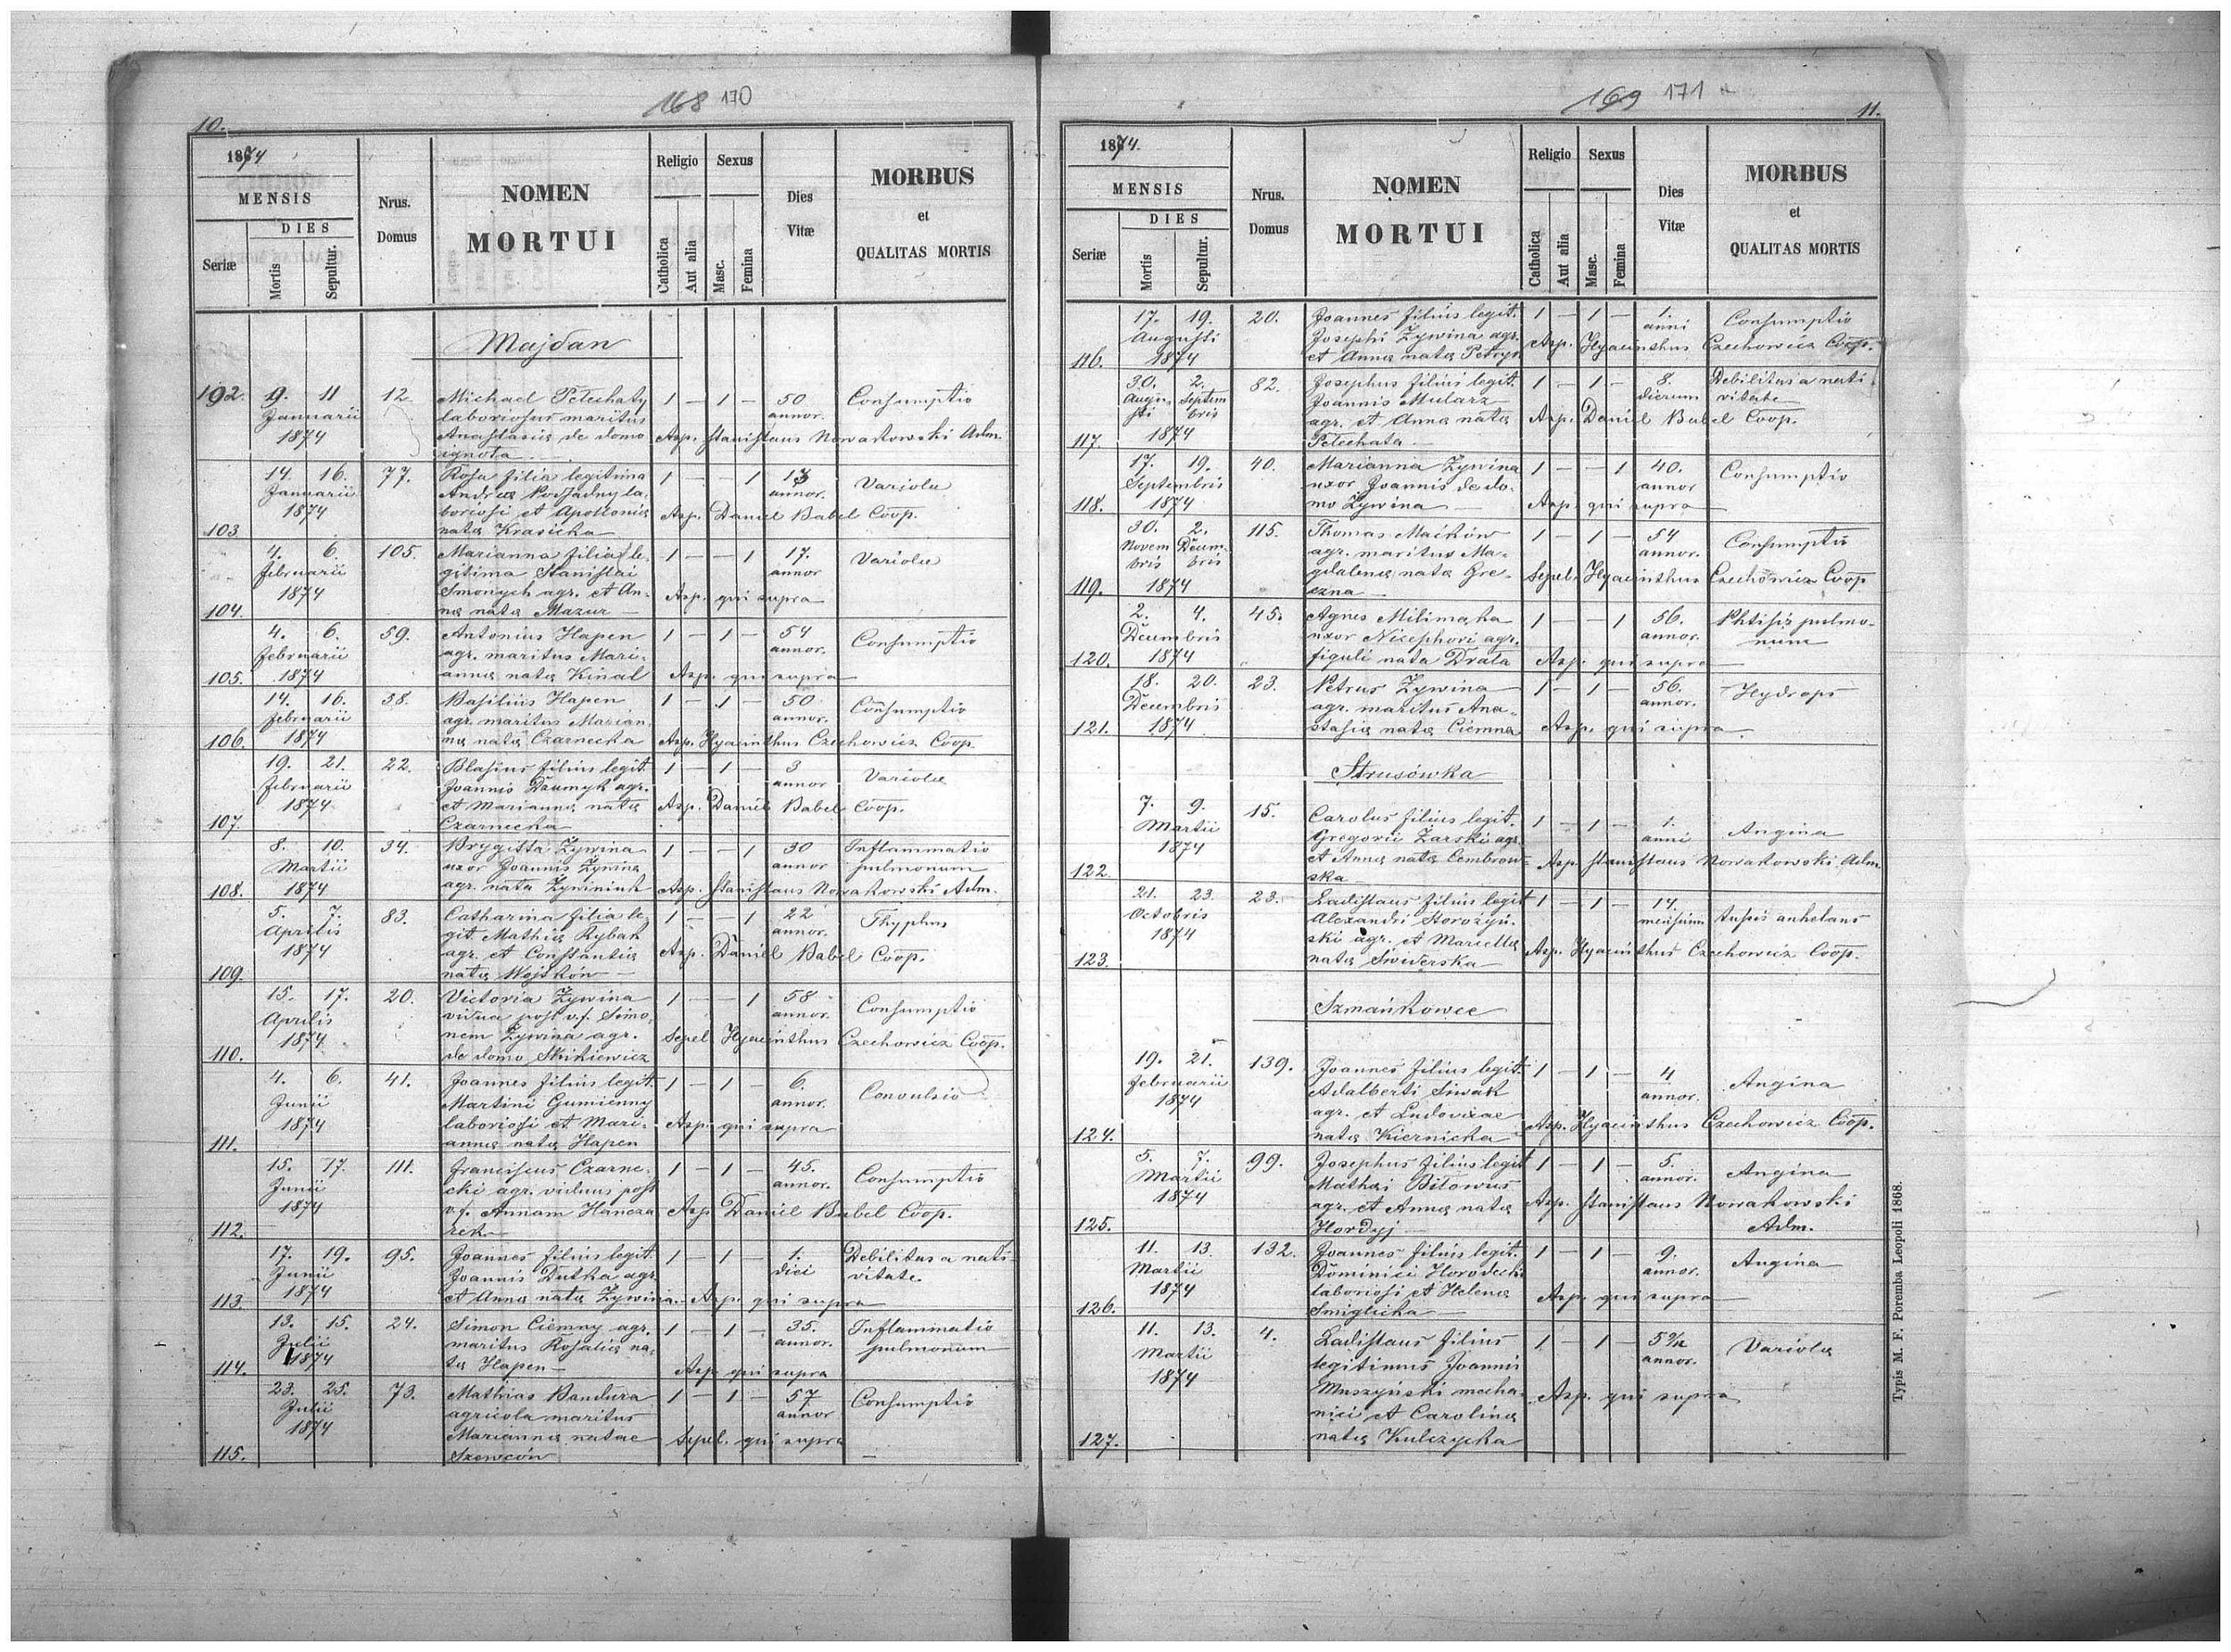 168 170
10.
1874
MENSIS
DIES
Seriæ
Mortis
Sepultur.
Nrus.
Domus
NOMEN
MORTUI
Religio
Catholica
Aut alia
Sexus
Masc.
Femina
Dies
Vitæ
MORBUS
et
QUALITAS MORTIS
Majdan
192. 9. 11 12. Michael Petechaty 1 — 1 — 50 Consumptio
Januarii laboriosus maritus annor.
1874 Anastasiæ de domo Asp. Stanislaus Nowakowski Adm.
ignota.
14. 16. 77. Rosa filia legitima 1 — — 1 13 Variolæ
Januarii Andreæ Podsadny la- annor.
1874 boriosi et Apolloniæ Asp. Daniel Babel Coop.
103. nata Krasicka
4. 6. 105. Marianna filia le- 1 — — 1 17. Variolæ
Februarii gitima Stanislai annor
1874 Smonych agr. et An- Asp. qui supra
104. næ natæ Mazur —
4. 6. 59. Antonius Hapen 1 — 1 — 54 Consumptio
Februarii agr. maritus Mari- annor.
105. 1874 annæ natæ Kinal Asp. qui supra
14. 16. 38. Basilius Hapen 1 — 1 — 50 Consumptio
Februarii agr. maritus Marian- annor.
106. 1874 næ natæ Czarnecka Asp. Hyacinthus Czechowicz Coop.
19. 21. 22. Blasius filius legit. 1 — 1 — 3 Variolæ
Februarii Joannis Daumyk agr. annor
1874 et Mariannæ natæ Asp. Daniel Babel Coop.
107. Czarnecka
8. 10. 34. Brygitta Żywina 1 — — 1 30 Inflammatio
Martii uxor Joannis Żywina annor pulmonum
108. 1874 agr. nata Żywiniuk Asp. Stanislaus Nowakowski Adm.
5. 7. 83. Catharina filia le- 1 — — 1 22 Thyphus
Aprilis git. Mathiæ Rybak annor.
1874 agr. et Constantiæ Asp. Daniel Babel Coop.
109. natæ Wojtków —
15. 17. 20. Victoria Żywina 1 — — 1 58 Consumptio
Aprilis vidua post v.f. Simo- annor.
1874 nem Żywina agr. Sepel Hyacinthus Czechowicz Coop.
110. de domo Skikiewicz
4. 6. 41. Joannes filius legit. 1 — 1 — 6. Convulsio
Junii Martini Gumienny annor.
1874 laboriosi et Mari- Asp. qui supra
111. annæ natæ Hapen
15. 17. 111. Franciscus Czarne- 1 — 1 — 45. Consumptio
Junii cki agr. viduus post annor.
1874 v.f. Annam Hancza Asp Daniel Babel Coop.
112. rek —
17. 19. 95. Joannes filius legit. 1 — 1 — 1. Debilitas a nati-
Junii Joannis Dutka agr. diei vitate.
113. 1874 et Annæ natæ Żywina. — Asp. qui supra
13. 15. 24. Simon Ciemny agr. 1 — 1 — 35. Inflammatio
Julii maritus Rosaliæ na- annor. pulmonum
114. 1874 tæ Hapen — Asp. qui supra
23. 25. 73. Mathias Bandura 1 — 1 — 57 Consumptio
Julii agricola maritus annor
1874 Mariannæ natae Sepel. qui supra
115. Szewców —
169 171
11.
1874.
MENSIS
DIES
Seriæ
Mortis
Sepultur.
Nrus.
Domus
NOMEN
MORTUI
Religio
Catholica
Aut alia
Sexus
Masc.
Femina
Dies
Vitæ
MORBUS
et
QUALITAS MORTIS
17. 19. 20. Joannes filius legit. 1 — 1 — 1. Consumptio
Augusti Josephi Żywina agr. anni
116. 1874 et Annæ natæ Petrys Asp. Hyacinthus Czechowicz Coop.
30. 2. 82. Josephus filius legit. 1 — 1 — 8. Debilitas a nati
Augu- Septem Joannis Mularz dierum vitate
sti bris agr. et Annæ natæ Asp. Daniel Babel Coop.
117. 1874 Petechata —
17. 19. 40. Marianna Żywina 1 — — 1 40. Consumptio
Septembris uxor Joannis de do- annor
118. 1874 mo Żywina — Asp qui supra
30. 2. 115. Thomas Maćków 1 — 1 — 54 Consumptio
Novem Decem- agr. maritus Ma- annor.
bris bris gdalenæ natæ Gre- Sepel. Hyacinthus Czechowicz Coop
119. 1874 czna —
2. 4. 45. Agnes Milimąka 1 — — 1 56. Phtisis pulmo-
Decembris uxor Nicephori agr. annor. num
120. 1874 figuli nata Drała Asp. qui supra
18. 20. 23. Petrus Żywina 1 — 1 — 56. Hydrops
Decembris agr. maritus Ana- annor.
121. 1874 stasiæ natæ Ciemna Asp. qui supra
Strusówka
7. 9. 15. Carolus filius legit. 1 — 1 — 1. Angina
Martii Gregorii Żarski agr. anni
1874 et Annæ natæ Cembrow- Asp Stanislaus Nowakowski Adm
122. ska
21. 23. 23. Ladislaus filius legit 1 — 1 — 14. tussis anhelans
Octobris Alexandri Storożyń- mensium
1874 ski agr. et Mariellæ Asp. Hyacinthus Czechowicz Coop.
123. natæ Świderska
Szmańkowce
19. 21. 139. Joannes filius legit. 1 — 1 — 4 Angina
Februarii Adalberti Siwak annor.
1874 agr. et Ludovicae Asp. Hyacinthus Czechowicz Coop.
124. natæ Kiernicka
5. 7. 99. Josephus filius legit 1 — 1 — 5. Angina
Martii Mathæi Biłowus annor.
1874 agr. et Annæ natæ Asp. Stanislaus Nowakowski
125. Hordyj — Adm.
11. 13. 132. Joannes filius legit. 1 — 1 — 9. Angina
Martii Dominici Horodecki annor.
1874 laboriosi et Helenæ Asp. qui supra
126. Smiglicka
11. 13. 4. Ladislaus filius 1 — 1 — 5 Variolæ
Martii legitimus Joannis annor.
1874 Muszyński mecha- Asp. qui supra
nici et Carolinæ
127. natæ Kulczycka
Typis M. F. Poremba Leopoli 1868.